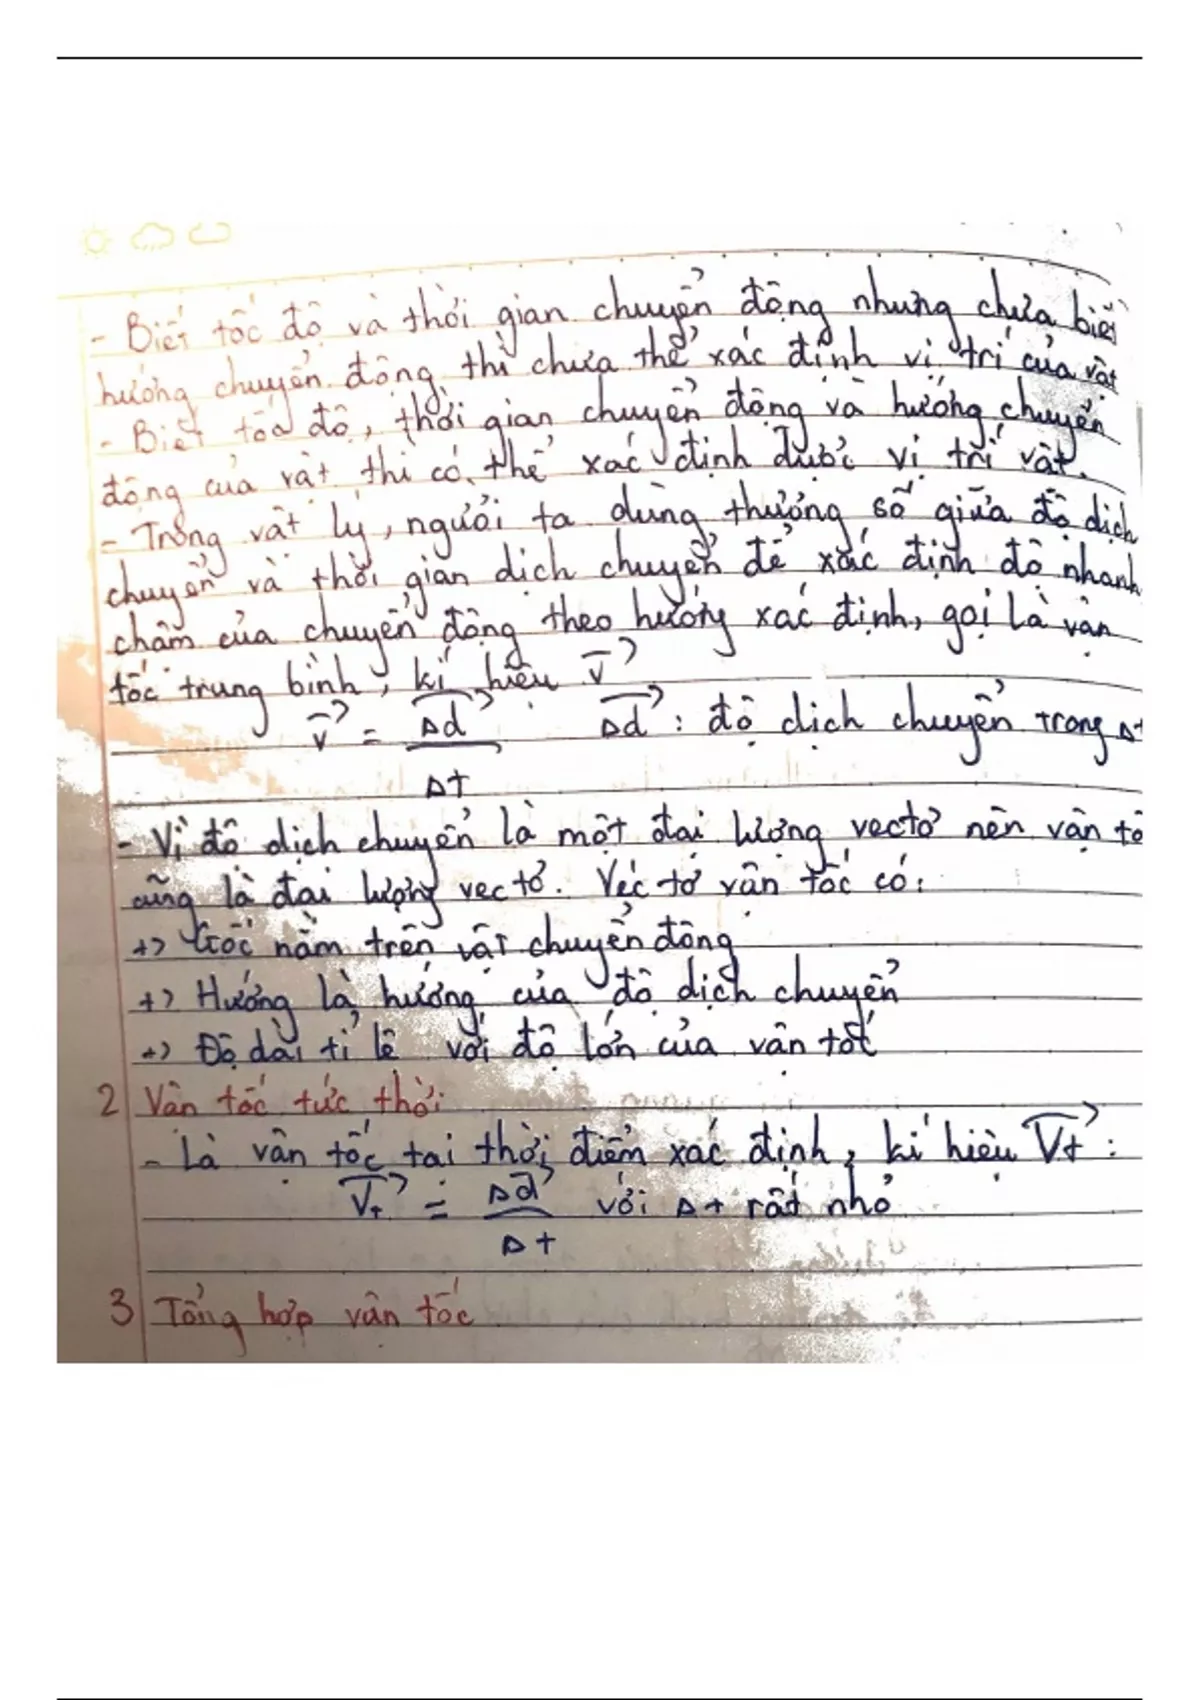 - Biết tốc độ và thời gian chuyển động nhưng chưa biết
hướng chuyển động thì chưa thể xác định vị trí của vật
- Biết tốc độ, thời gian chuyển động và hướng chuyển
động của vật thì có thể xác định được vị trí vật.
- Trong vật lý, người ta dùng thương số giữa độ dịch
chuyển và thời gian dịch chuyển để xác định độ nhanh
chậm của chuyển động theo hướng xác định, gọi là vận
tốc trung bình, kí hiệu v⃗
v⃗ = Δd⃗ Δd⃗ : độ dịch chuyển trong Δt
Δt
- Vì độ dịch chuyển là một đại lượng vectơ nên vận tố
cũng là đại lượng vectơ. Véc tơ vận tốc có:
+> Gốc nằm trên vật chuyển động
+> Hướng là hướng của độ dịch chuyển
+> Độ dài tỉ lệ với độ lớn của vận tốc
2 Vận tốc tức thời
- Là vận tốc tại thời điểm xác định, kí hiệu V⃗t :
V⃗t = Δd⃗ với Δt rất nhỏ
Δt
3 Tổng hợp vận tốc